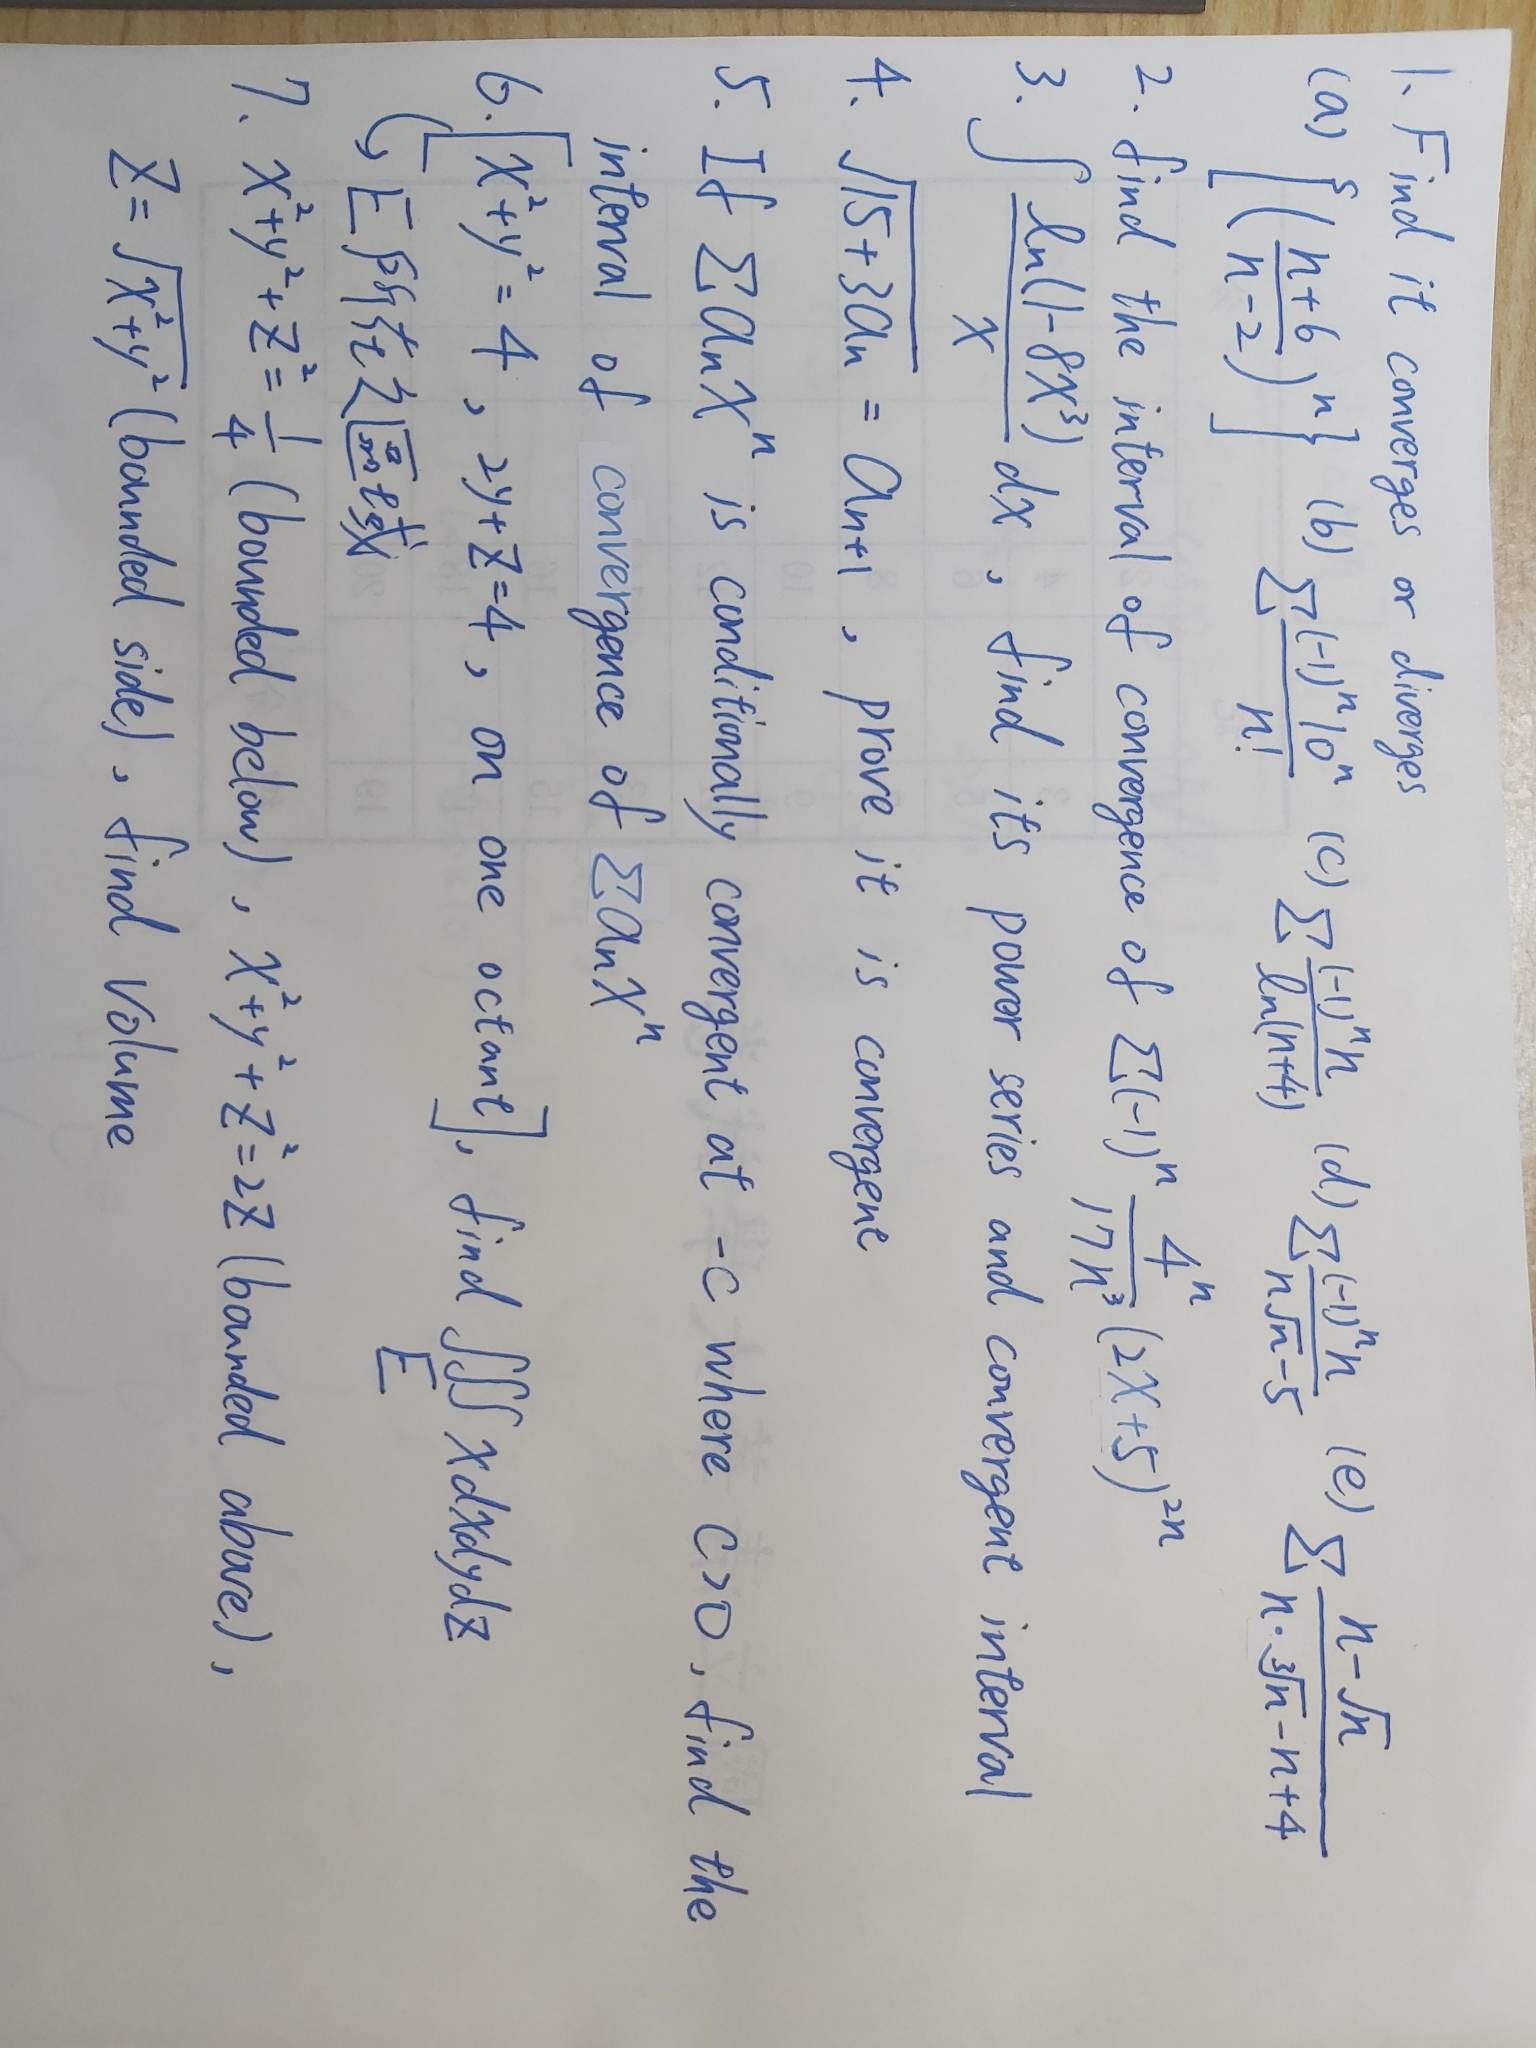 1. Find it converges or diverges
(a) {((n+6)/(n-2))^n} (b) Σ (-1)^n 10^n / n! (c) Σ (-1)^n n / ln(n+4) (d) Σ (-1)^n n / (n√n-5) (e) Σ (n-√n) / (n·∛n-n+4)
2. find the interval of convergence of Σ(-1)^n 4^n/(17n^3) (2x+5)^{2n}
3. ∫ ln(1-8x^3)/x dx, find its power series and convergent interval
4. √(15+3a_n) = a_{n+1}, prove it is convergent
5. If Σa_n x^n is conditionally convergent at -c where c>0, find the
interval of convergence of Σa_n x^n
6. [x^2+y^2=4, 2y+z=4, on one octant], find ∭_E x dxdydz
↪ E所在之區域
7. x^2+y^2+z^2=1/4 (bounded below), x^2+y^2+z^2=2z (bounded above),
z=√(x^2+y^2) (bounded side), find volume